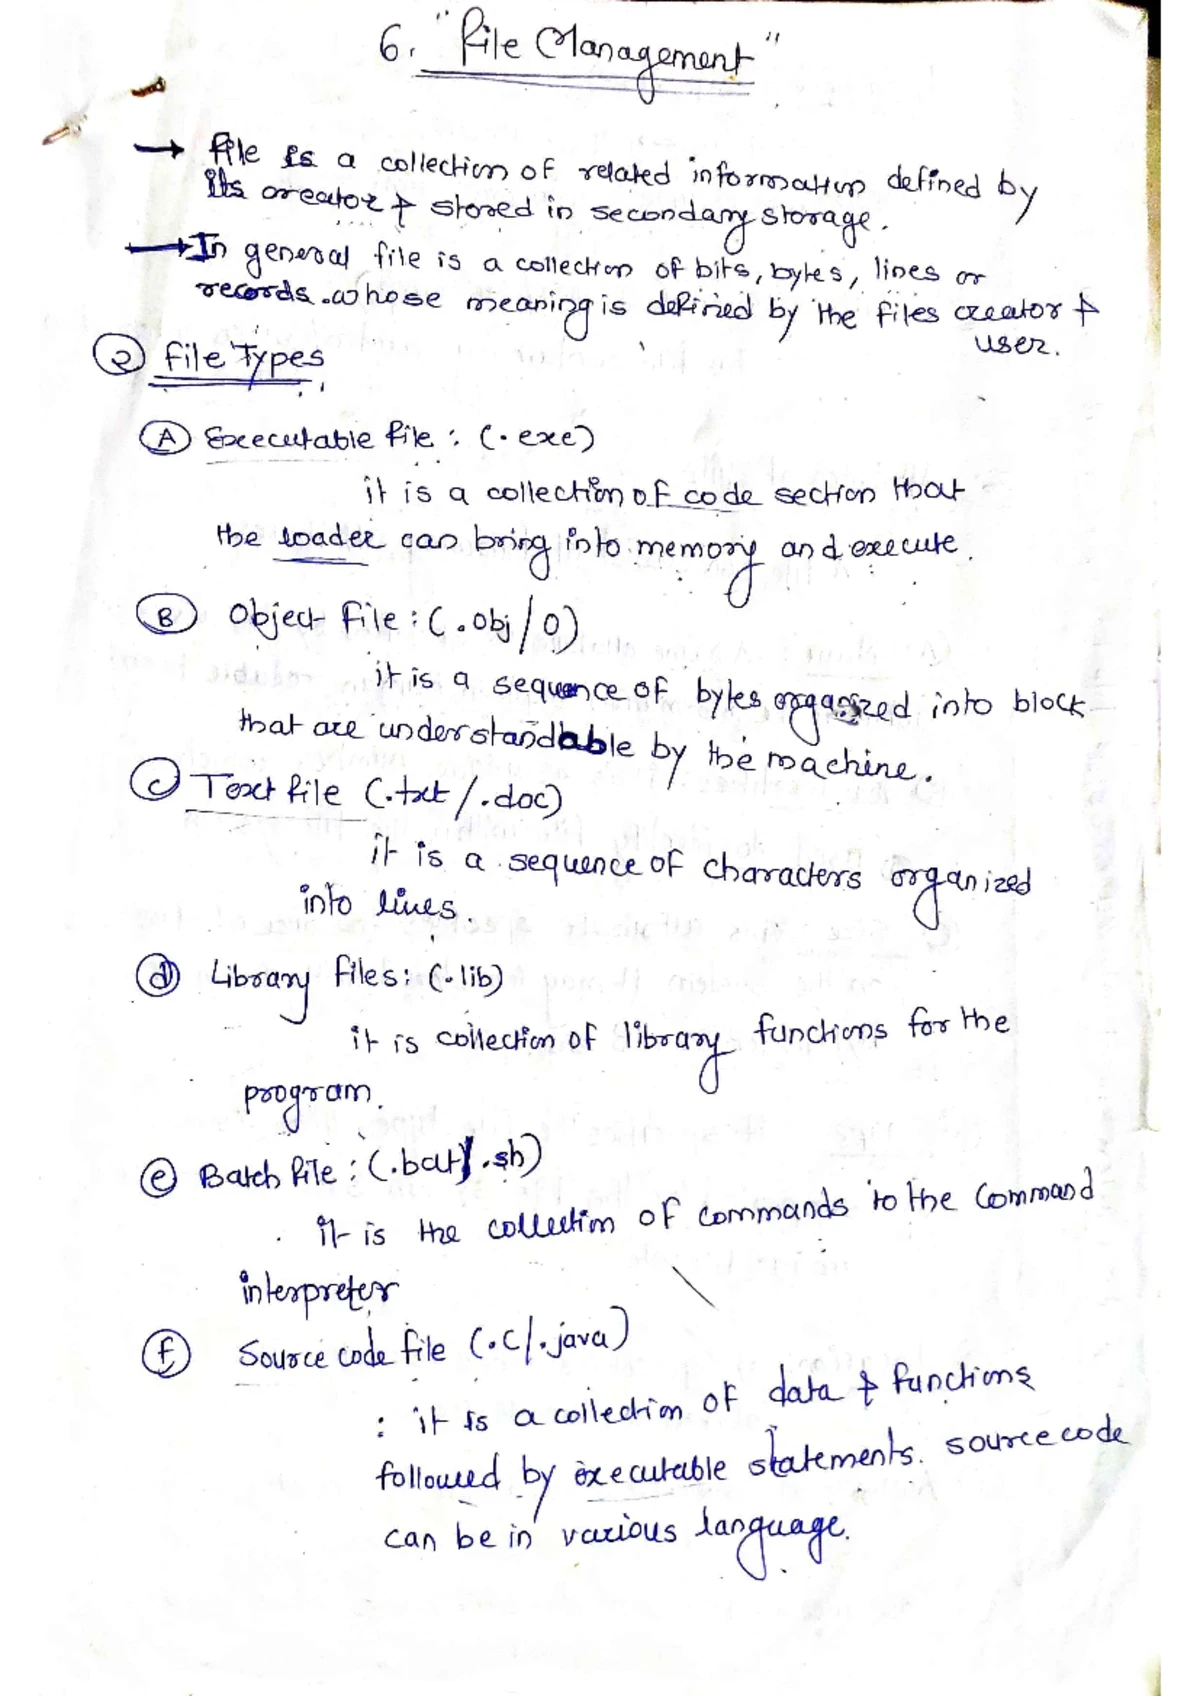 6. "File Management"
→ File is a collection of related information defined by
its creator & stored in secondary storage.
→ In general file is a collection of bits, bytes, lines or
records. whose meaning is defined by the files creator &
user.
② File Types
Ⓐ Executable file : (.exe)
it is a collection of code section that
the loader can bring into memory and execute.
Ⓑ Object file : (.obj/0)
it is a sequence of bytes organized into block
that are understandable by the machine.
Ⓒ Text file (.txt/.doc)
it is a sequence of characters organized
into lines.
ⓓ Library files: (.lib)
it is collection of library functions for the
program.
ⓔ Batch file : (.bat/.sh)
it is the collection of commands to the command
interpreter
ⓕ Source code file (.c/.java)
: it is a collection of data & functions
followed by executable statements. source code
can be in various language.